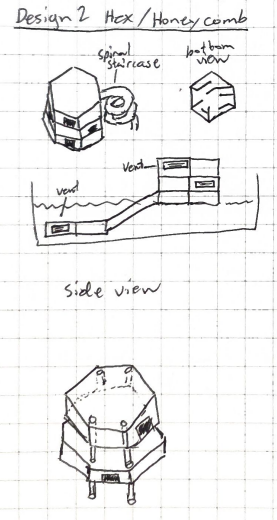 Design 2 Hex/Honeycomb
spiral
staircase
bottom
view
vent
vent
side view